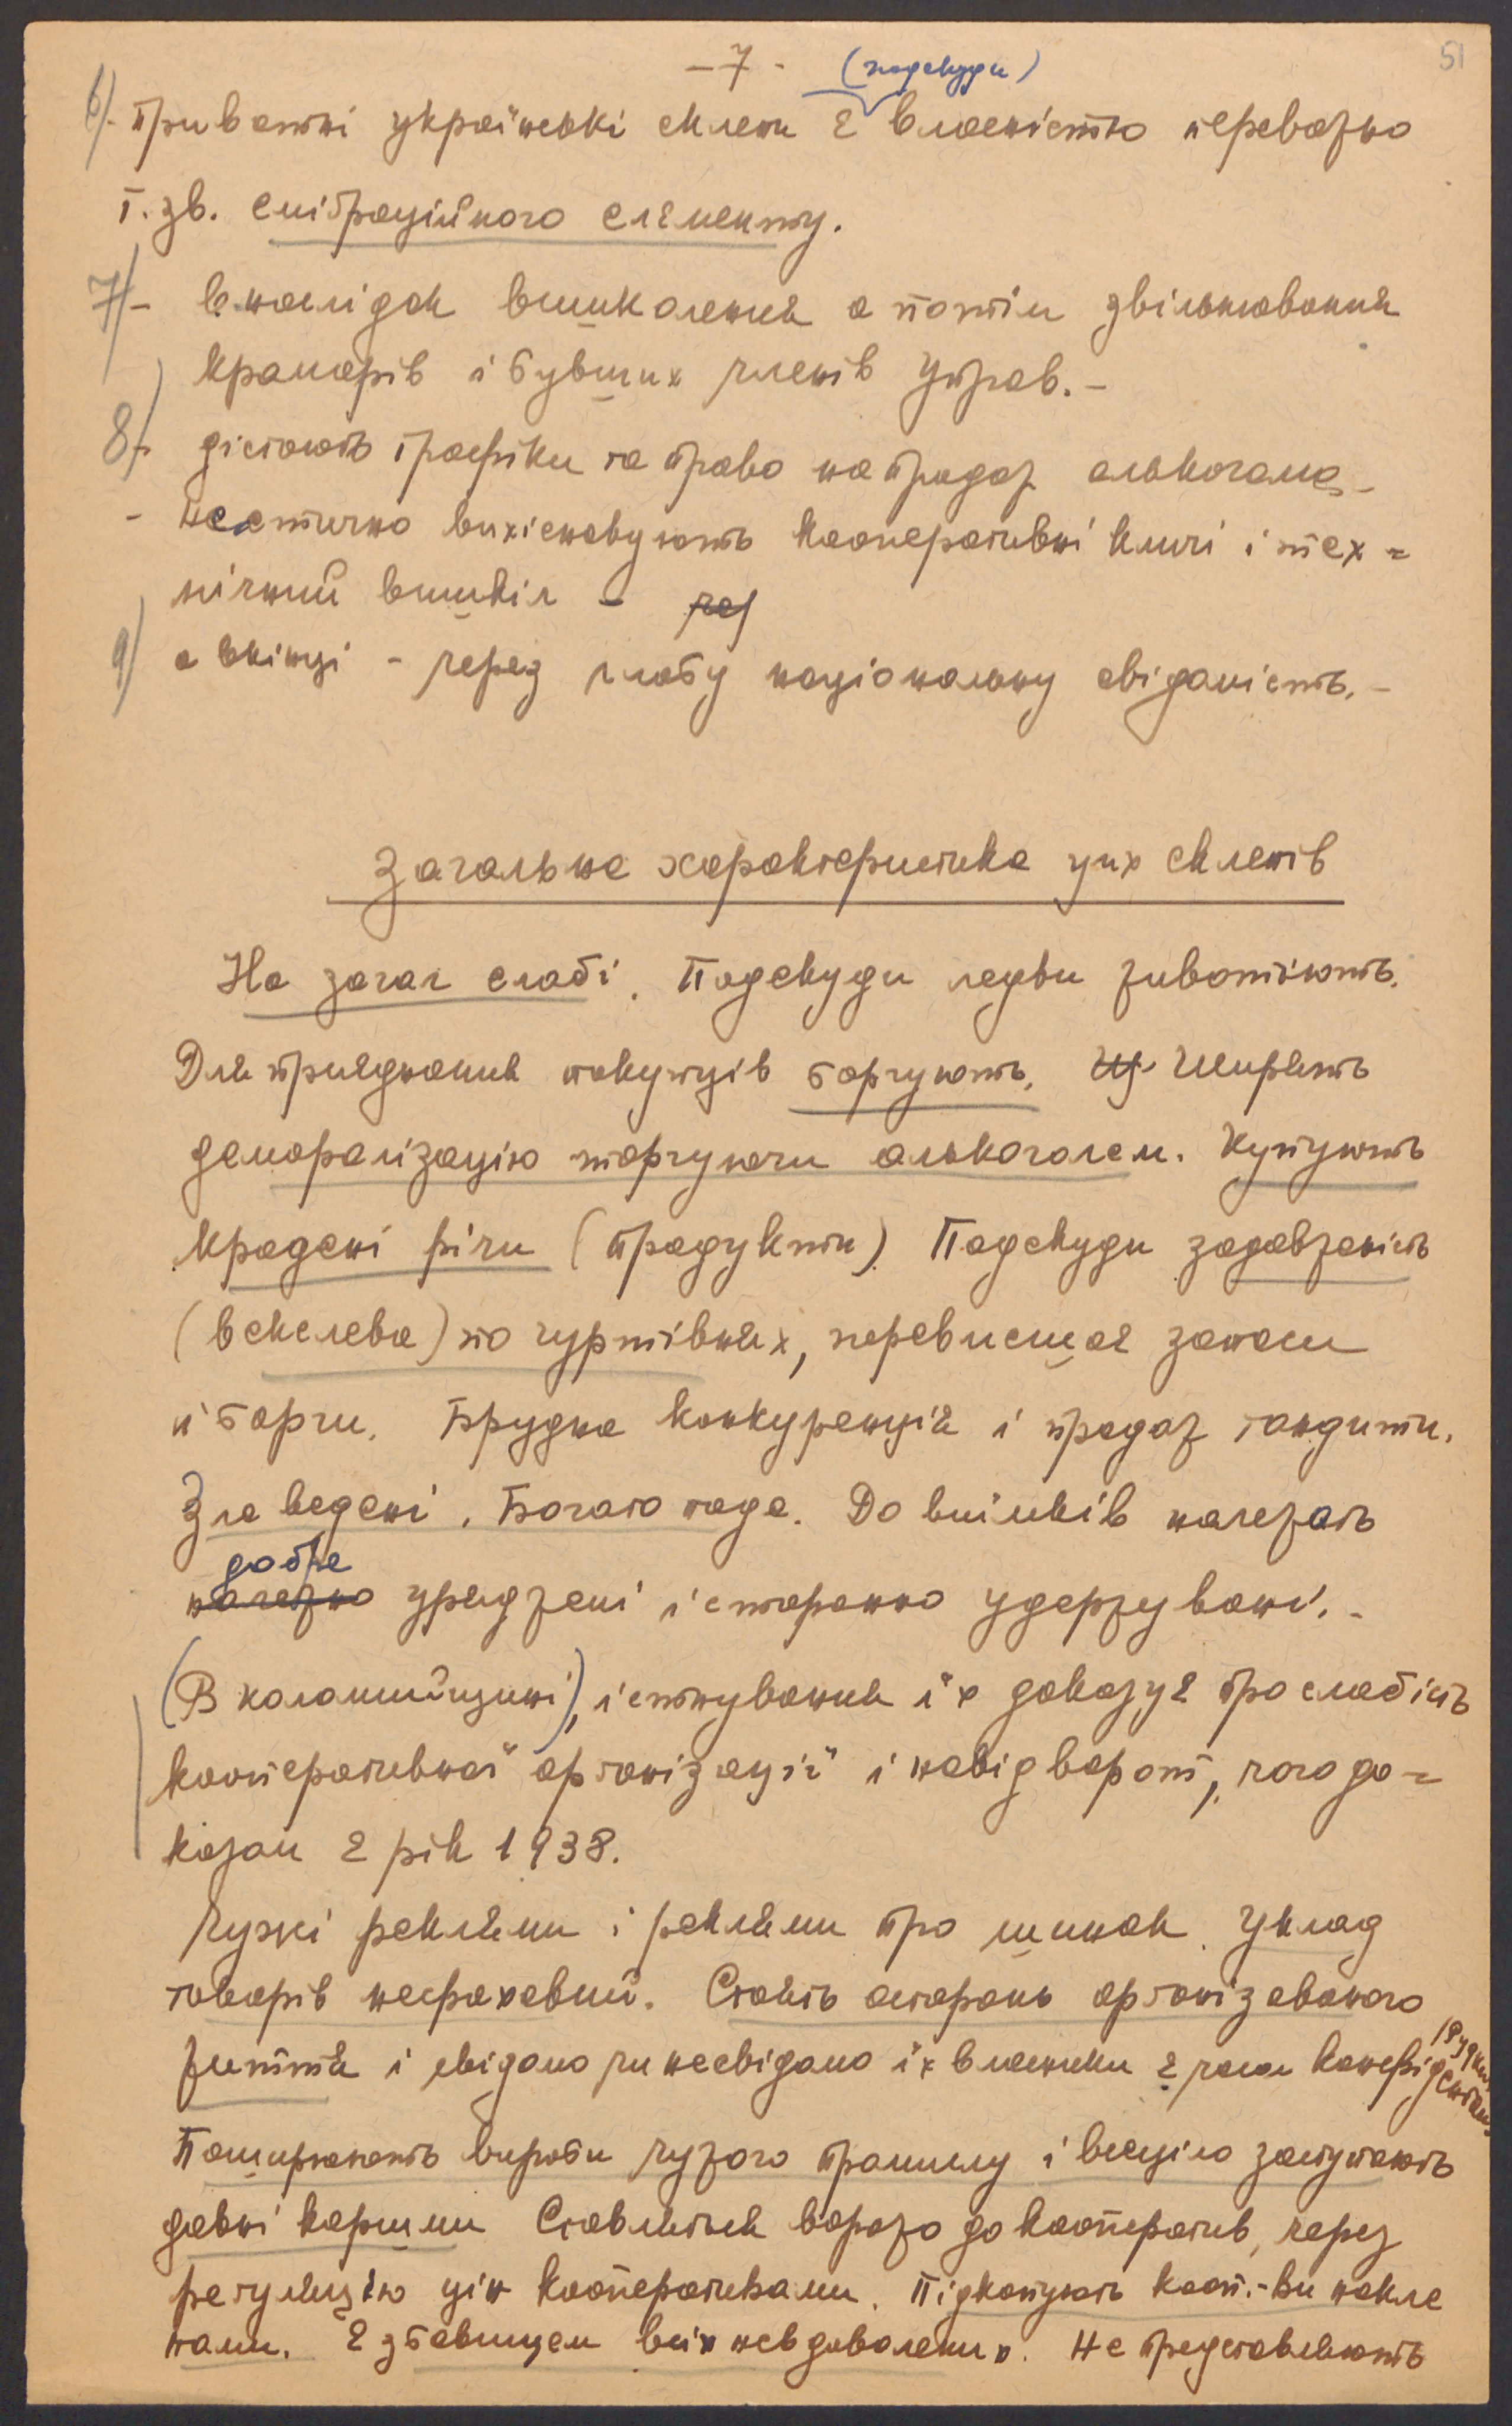 - 7 -
51
(подекуди)
6) - Приватні українські склепи є власністю переважно
т. зв. еміграційного елєменту.
7) - внаслідок вишколення а потім звільнювання
крамарів і бувших членів управ. -
8) - дістають трафіки та право на продаж алькоголю -
- частично вихісновують кооперативні кличі і тех=
нічний вишкіл -
9) а вкінці - через слабу національну свідомість. -
Загальна характеристика цих склепів
На загал слабі. Подекуди ледви животіють.
Для приєднання покупців боргують. Ширять
деморалізацію торгуючи алькоголем. Купують
крадені річи (продукти) Подекуди задовженість
(векслева) по гуртівнях, перевисшає запаси
й борги. Брудна конкуренція і продаж тандити.
Зле ведені. Богато паде. До виїмків належать
добре
належно уряджені і старанно удержувані. -
(В коломийщині), існування їх доказує про слабість
кооперативної організації і навідворот, чого до=
казом є рік 1938.
Чужі реклями і реклями про шинок. Уклад
товарів нефаховий. Стоять осторонь організованого
життя і свідомо чи несвідомо їх власники є часом конфідентами
Поширюють вироби чужого промислу і вповні заступають
давні коршми Ставляться вороже до кооператив, через
регуляцію цін кооперативами. Підкопують кооп.-ви накле
пами. Є збавищем всіх невдоволених. Не представляють